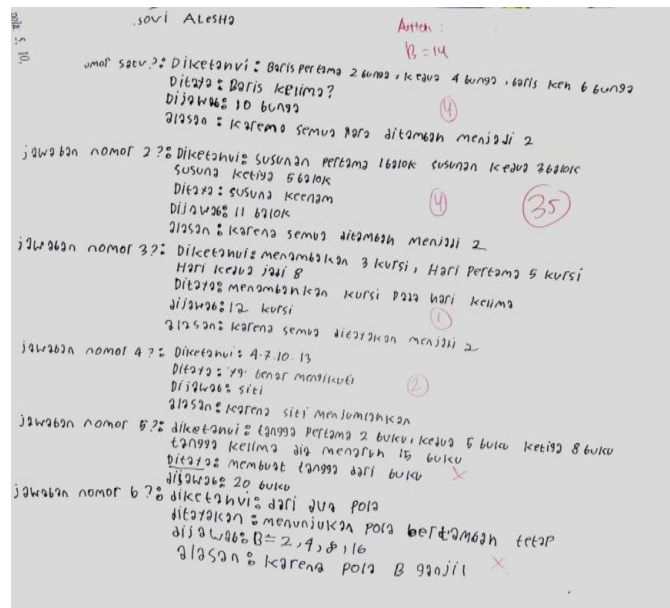 sovi ALesHa
B = 14
omor satu?: Diketahui: Baris pertama 2 bunga, kedua 4 bunga, baris keti 6 bunga
Ditaya: Baris kelima?
Dijawab: 10 bunga
4
alasan: karena semua para ditambah menjadi 2
jawaban nomor 2?: Diketahui: susunan pertama 1 balok susunan kedua 3 balok
susuna ketiga 5 balok
Ditaya: susuna keenam
4
35
Dijawab: 11 balok
alasan: karena semua ditambah menjadi 2
jawaban nomor 3?: Diketahui: menambakan 3 kursi, Hari pertama 5 kursi
Hari kedua jadi 8
Ditaya: menambahkan kursi pada hari kelima
dijawab: 12 kursi
1
alasan: karena semua menjadi 2
jawaban nomor 4?: Diketahui: 4.7.10.13
Ditaya: yg benar mengikuti
2
Dijawab: siti
alasan: karena siti menjumlahkan
jawaban nomor 5?: diketahui: tangga pertama 2 buku, kedua 5 buku ketiga 8 buku
tangga kelima dia menaruh 15 buku
Ditaya: membuat tangga dari buku
dijawab: 20 buku
jawaban nomor 6?: diketahui: dari dua pola
ditayakan: menunjukan pola bertambah tetap
dijawab: B = 2, 4, 8, 16
alasan: karena pola B ganjil